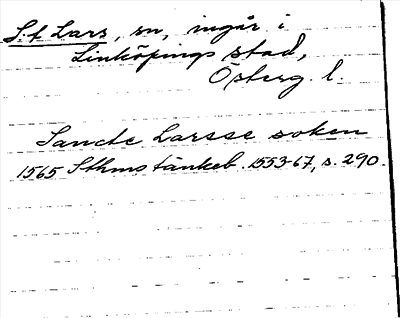 S:t Lars, sn, ingår i
Linköpings stad,
Österg. l.
Sancte Larsse soken
1565 Sthms tänkeb. 1553-67, s. 290.